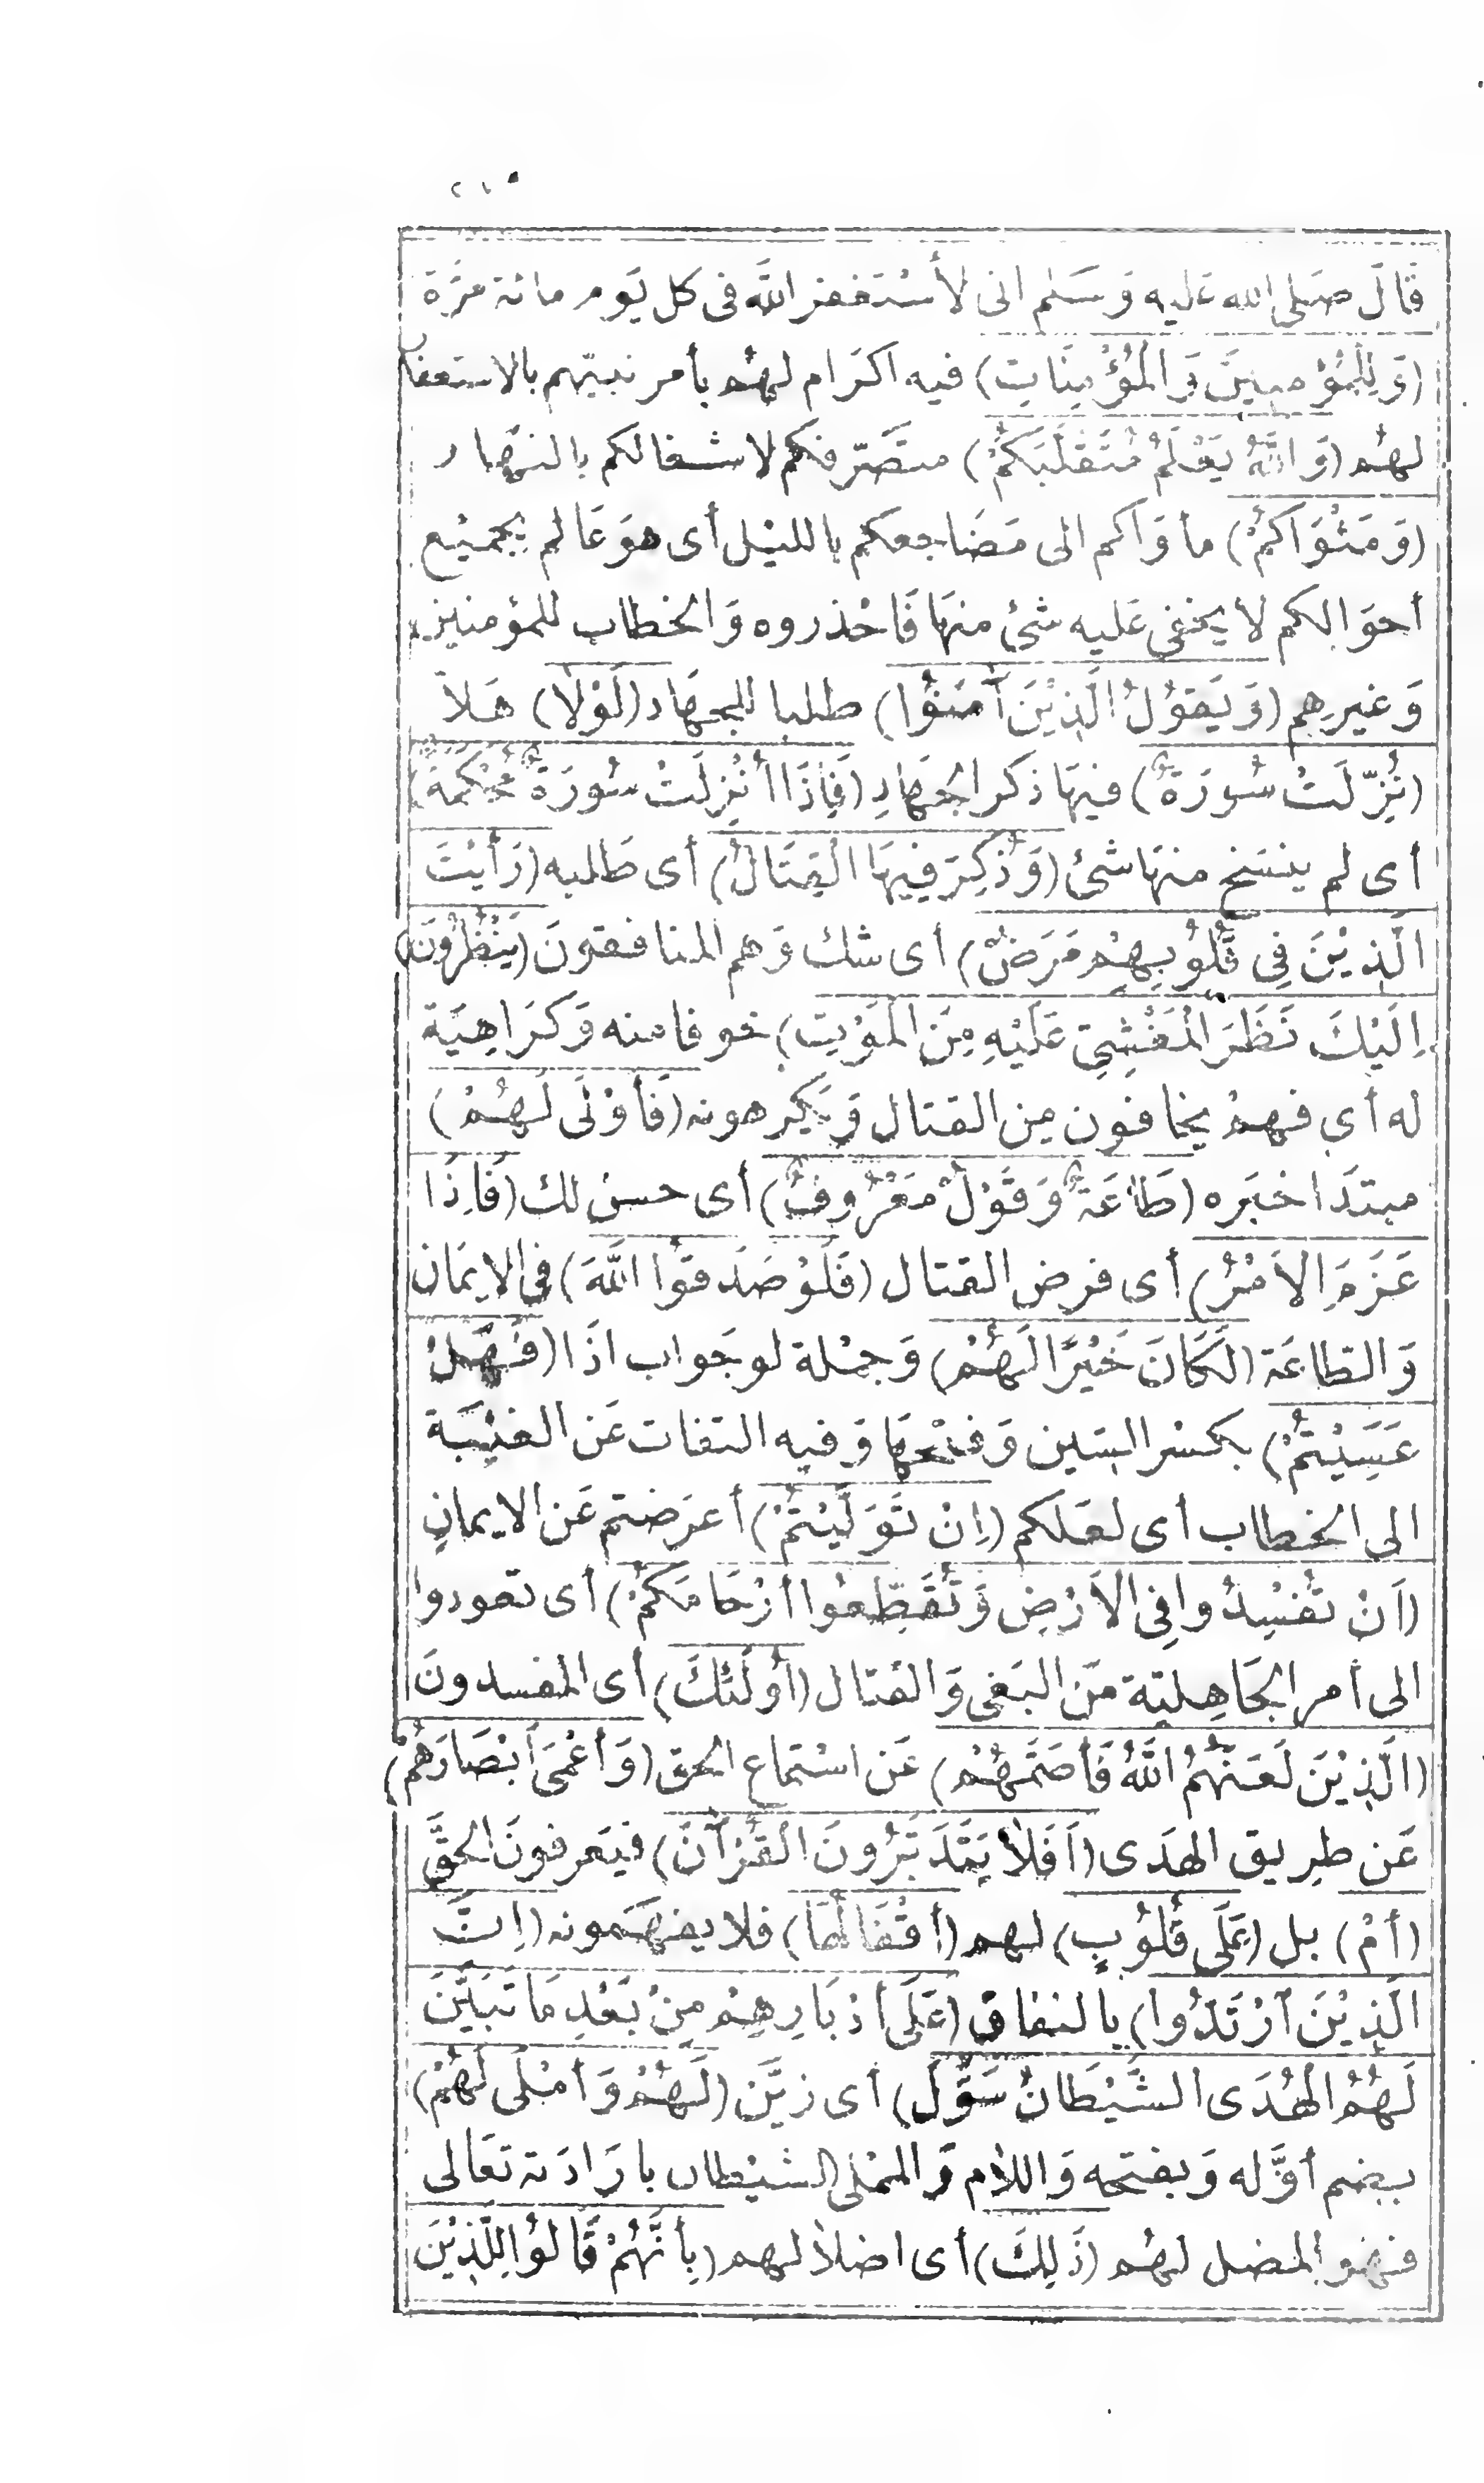 ٢١٥
قَالَ صَلى الله عَليه وَسَلم انى لأسْتغفر اللَّه فى كل يَوم مائة مَرَّة
(وَلِلْمُؤْمِنِينَ وَالْمُؤْمِنَاتِ) فيه اكرَام لهُم بأمر نبيّهم بالاستغفار
لهُم (وَاللَّهُ يَعْلَمُ مُتَقَلَّبَكُمْ) متصَرّفكم لاشغالكم بالنهَار
(وَمَثْوَاكُمْ) مأوَاكم الى مَضَاجعكم بالليْل أى هوَ عَالم بجميْع
أحوَالكم لا يخفى عَليه شئ منهَا فَاحْذروه وَالخطاب للمؤمنين
وَغيرِهم (وَيَقُوْلُ الَّذِيْنَ آمَنُوْا) طلبا للجهَاد (لَوْلاَ) هَلاّ
(نُزِّلَتْ سُورَةٌ) فيهَا ذكر الجهَادِ (فَاِذَا أُنْزِلَتْ سُورَةٌ مُحْكَمَةٌ)
أى لم ينسَخ منهَا شئ (وَذُكِرَ فِيهَا الْقِتَالُ) أى طَلبه (رَأَيْتَ
الَّذِيْنَ فِى قُلُوْبِهِمْ مَرَضٌ) أى شك وَهم المنافقونَ (يَنْظُرُوْنَ
اِلَيْكَ نَظَرَ الْمَغْشِىِّ عَلَيْهِ مِنَ الْمَوْتِ) خوفا منه وَكرَاهِيَة
له أى فهمْ يخافون مِن القتال وَيَكرهونه (فَأَوْلَى لَهُمْ)
مبتدَا خبَره (طَاعَةٌ وَقَوْلٌ مَعْرُوفٌ) أى حسن لك (فَاِذَا
عَزَمَ الاَمْرُ) أى فرض القتال (فَلَوْ صَدَقُوا اللَّهَ) فى الايمَان
وَالطاعَة (لَكَانَ خَيْرًا لَهُمْ) وَجمْلة لو جَواب اذَا (فَهَلْ
عَسَيْتُمْ) بكسْر السّين وَفتْحهَا وَفيه التفات عَن الغيْبَة
الى الخطاب أى لعَلكم (اِنْ تَوَلَّيْتُمْ) أعرَضتم عَن الايمانِ
(اَنْ تُفْسِدُوا فِى الاَرْضِ وَتُقَطِّعُوا أَرْحَامَكُمْ) أى تعودوا
الى أمر الجَاهِليّة مّن البَغى وَالقتال (أُولَئِكَ) أى المفسدونَ
(الَّذِيْنَ لَعَنَهُمُ اللَّهُ فَأَصَمَّهُمْ) عَن اسْتماع الحق (وَأَعْمَى أَبْصَارَهُمْ)
عَن طرِيق الهدَى (اَفَلاَ يَتَدَبَّرُونَ الْقُرْآنَ) فيَعرفونَ الحقَّ
(أَمْ) بل (عَلَى قُلُوْبٍ) لهم (أَقْفَالُهَا) فلا يفهَمونه (اِنَّ
الَّذِيْنَ اَرْتَدُّوا) بالنفاق (عَلَى أَدْبَارِهِمْ مِنْ بَعْدِ مَا تَبَيَّنَ
لَهُمُ الْهُدَى الشَّيْطَانُ سَوَّلَ) أى زيَّن (لَهُمْ وَأَمْلَى لَهُمْ)
بضم أوَّله وَبفتحه وَاللام وَالممْلى الشيْطان بارَادَته تعَالى
فهْو المضل لهُم (ذَلِكَ) أى اضلالهم (بِأَنَّهُمْ قَالُوْا لِلَّذِيْنَ